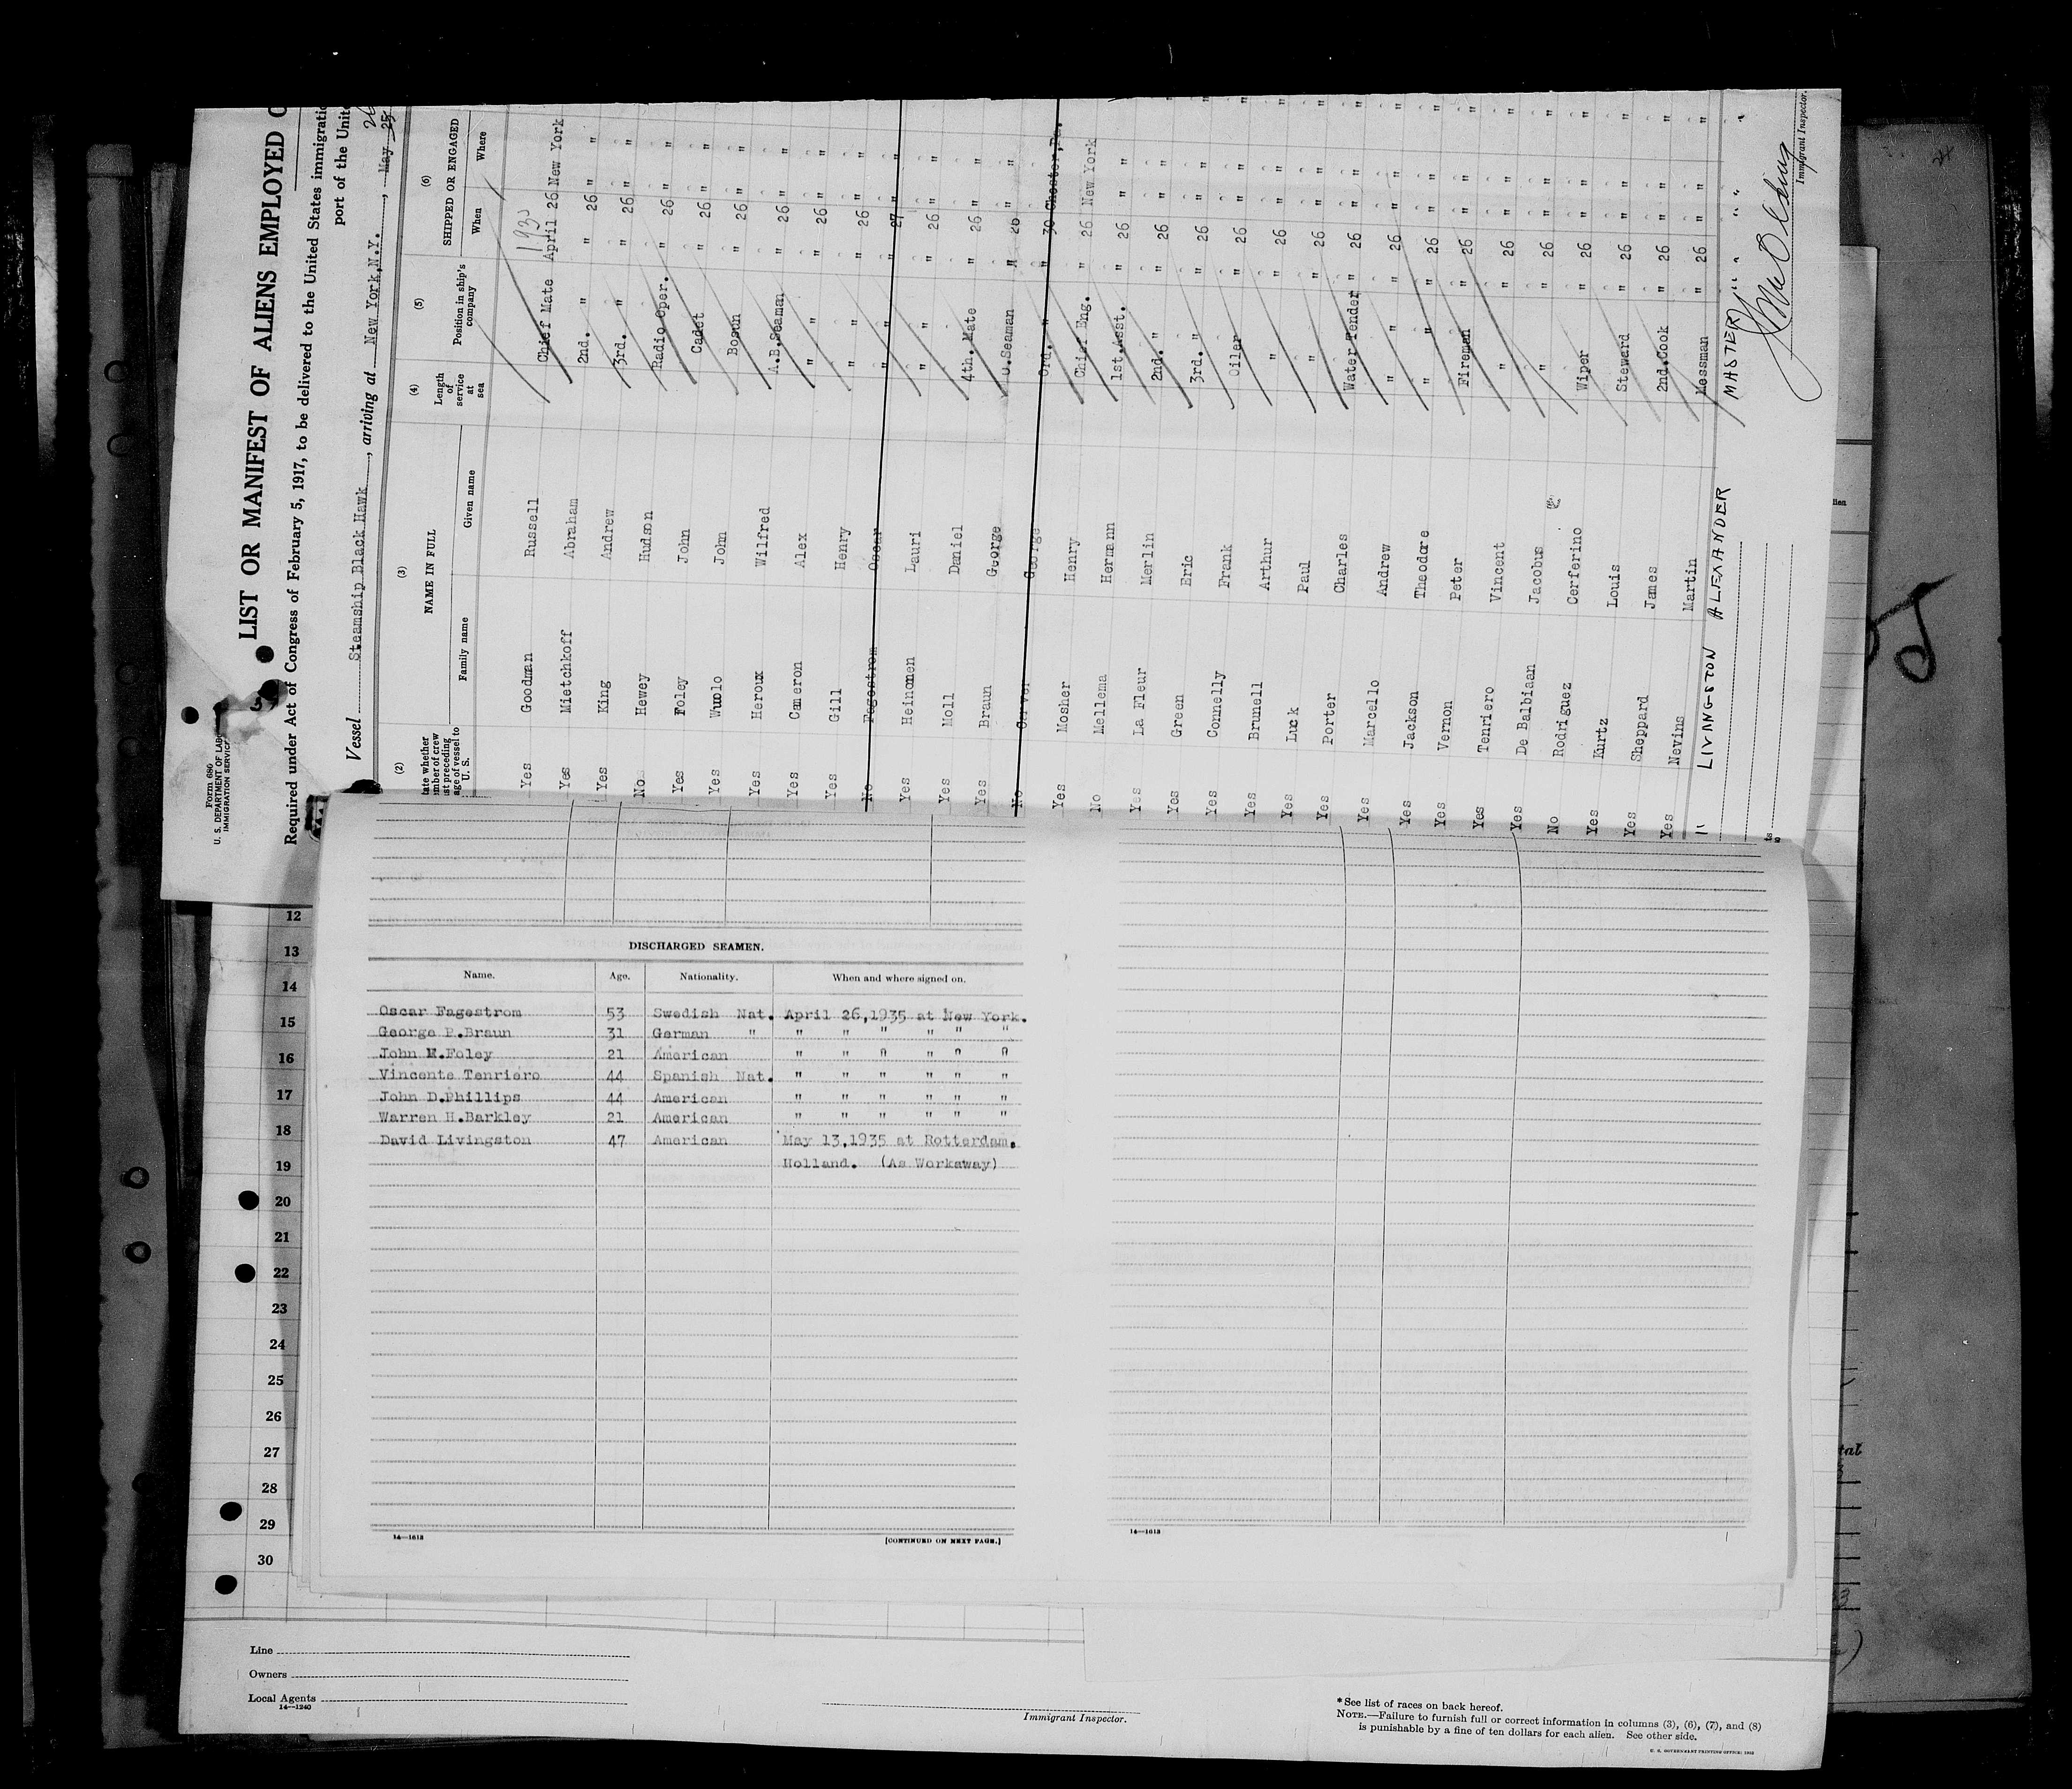 Form 680
U. S. DEPARTMENT OF LABOR
IMMIGRATION SERVICE
LIST OR MANIFEST OF ALIENS EMPLOYED
Required under Act of Congress of February 5, 1917, to be delivered to the United States
port of the
Vessel Steamship Black Hawk, arriving at New York, N.Y., May 25 26
(2) (3) (4) (5) (6)
NAME IN FULL
Length of service at sea
Position in ship's company
SHIPPED OR ENGAGED
of vessel to U. S.
Family name Given name When Where
1935
Yes Goodman Russell Chief Mate April 26 New York
Yes Mietchkoff Abraham 2nd. " " 26 " "
Yes King Andrew 3rd. " " 26 " "
No Hewey Hudson Radio Oper. " 26 " "
Yes Foley John Cadet " 26 " "
Yes Wuolo John Bosun " 26 " "
Yes Heroux Wilfred A.B.Seaman " 26 " "
Yes Cameron Alex " " 26 " "
Yes Gill Henry " " 26 " "
No Fagestrom Oscar " " 27 " "
Yes Heinonen Lauri " " 26 " "
Yes Moll Daniel 4th. Mate " 26 " "
Yes Braun George O.Seaman " 26 " "
No Carver George Ord. " " 30 Chester,Pa.
Yes Mosher Henry Chief Eng. " 26 New York
No Mellema Hermann 1st.Asst. " 26 " "
Yes La Fleur Merlin 2nd. " " 26 " "
Yes Green Eric 3rd. " " 26 " "
Yes Connelly Frank Oiler " 26 " "
Yes Brunell Arthur " " 26 " "
Yes Luck Paul " " 26 " "
Yes Porter Charles Water Tender " 26 " "
Yes Marcello Andrew " " 26 " "
Yes Jackson Theodore " " 26 " "
Yes Vernon Peter Fireman " 26 " "
Yes Tenriero Vincent " " 26 " "
Yes De Balbiaan Jacobus " " 26 " "
No Rodriguez Cerferino Wiper " 26 " "
Yes Kurtz Louis Steward " 26 " "
Yes Sheppard James 2nd.Cook " 26 " "
Yes Nevins Martin Messman " 26 " "
" LIVINGSTON ALEXANDER MASTER " " " "
Immigrant Inspector.
DISCHARGED SEAMEN.
Name. Age. Nationality. When and where signed on.
Oscar Fagestrom 53 Swedish Nat. April 26,1935 at New York.
George P.Braun 31 German " " " " " " "
John E.Foley 21 American " " " " " "
Vincente Tenriero 44 Spanish Nat. " " " " " "
John D.Phillips 44 American " " " " " "
Warren H.Barkley 21 American " " " " " "
David Livingston 47 American May 13,1935 at Rotterdam.
Holland. (As Workaway)
14—1613
[CONTINUED ON NEXT PAGE.]
14—1613
12
13
14
15
16
17
18
19
20
21
22
23
24
25
26
27
28
29
30
Line
Owners
Local Agents
14—1240
Immigrant Inspector.
* See list of races on back hereof.
NOTE.—Failure to furnish full or correct information in columns (3), (6), (7), and (8)
is punishable by a fine of ten dollars for each alien. See other side.